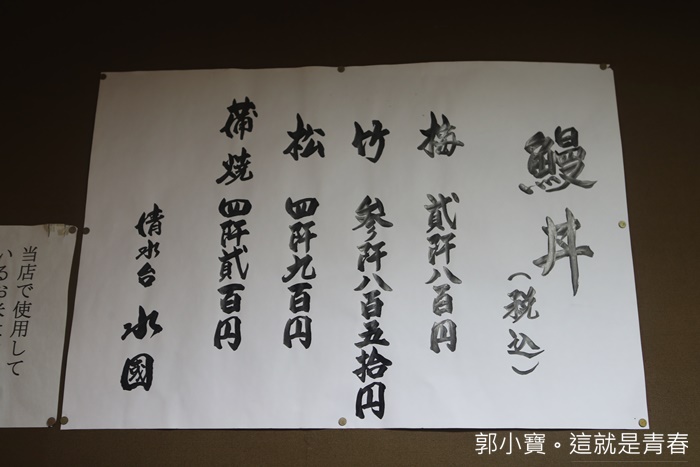 鰻丼
（税込）
梅 貳阡八百円
竹 参阡八百五拾円
松 四阡九百円
蒲焼 四阡貳百円
清水台 水國
当店で使用して
いるお米は
郭小寶。這就是青春